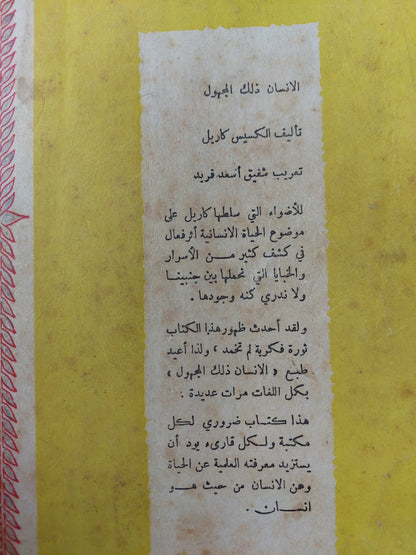 الانسان ذلك المجهول
تأليف الكسيس كاريل
تعريب شفيق أسعد فريد
للأضواء التي سلطها كاريل على
موضوع الحياة الانسانية أثر فعال
في كشف كثير من الأسرار
والخبايا التي نحملها بين جنبينا
ولا ندري كنه وجودها .
ولقد أحدث ظهور هذا الكتاب
ثورة فكرية لم تخمد ، ولذا أعيد
طبع « الانسان ذلك المجهول »
بكل اللغات مرات عديدة .
هذا كتاب ضروري لكل
مكتبة ولكل قارىء يود أن
يستزيد معرفته العلمية عن الحياة
وعن الانسان من حيث هو
انسان .